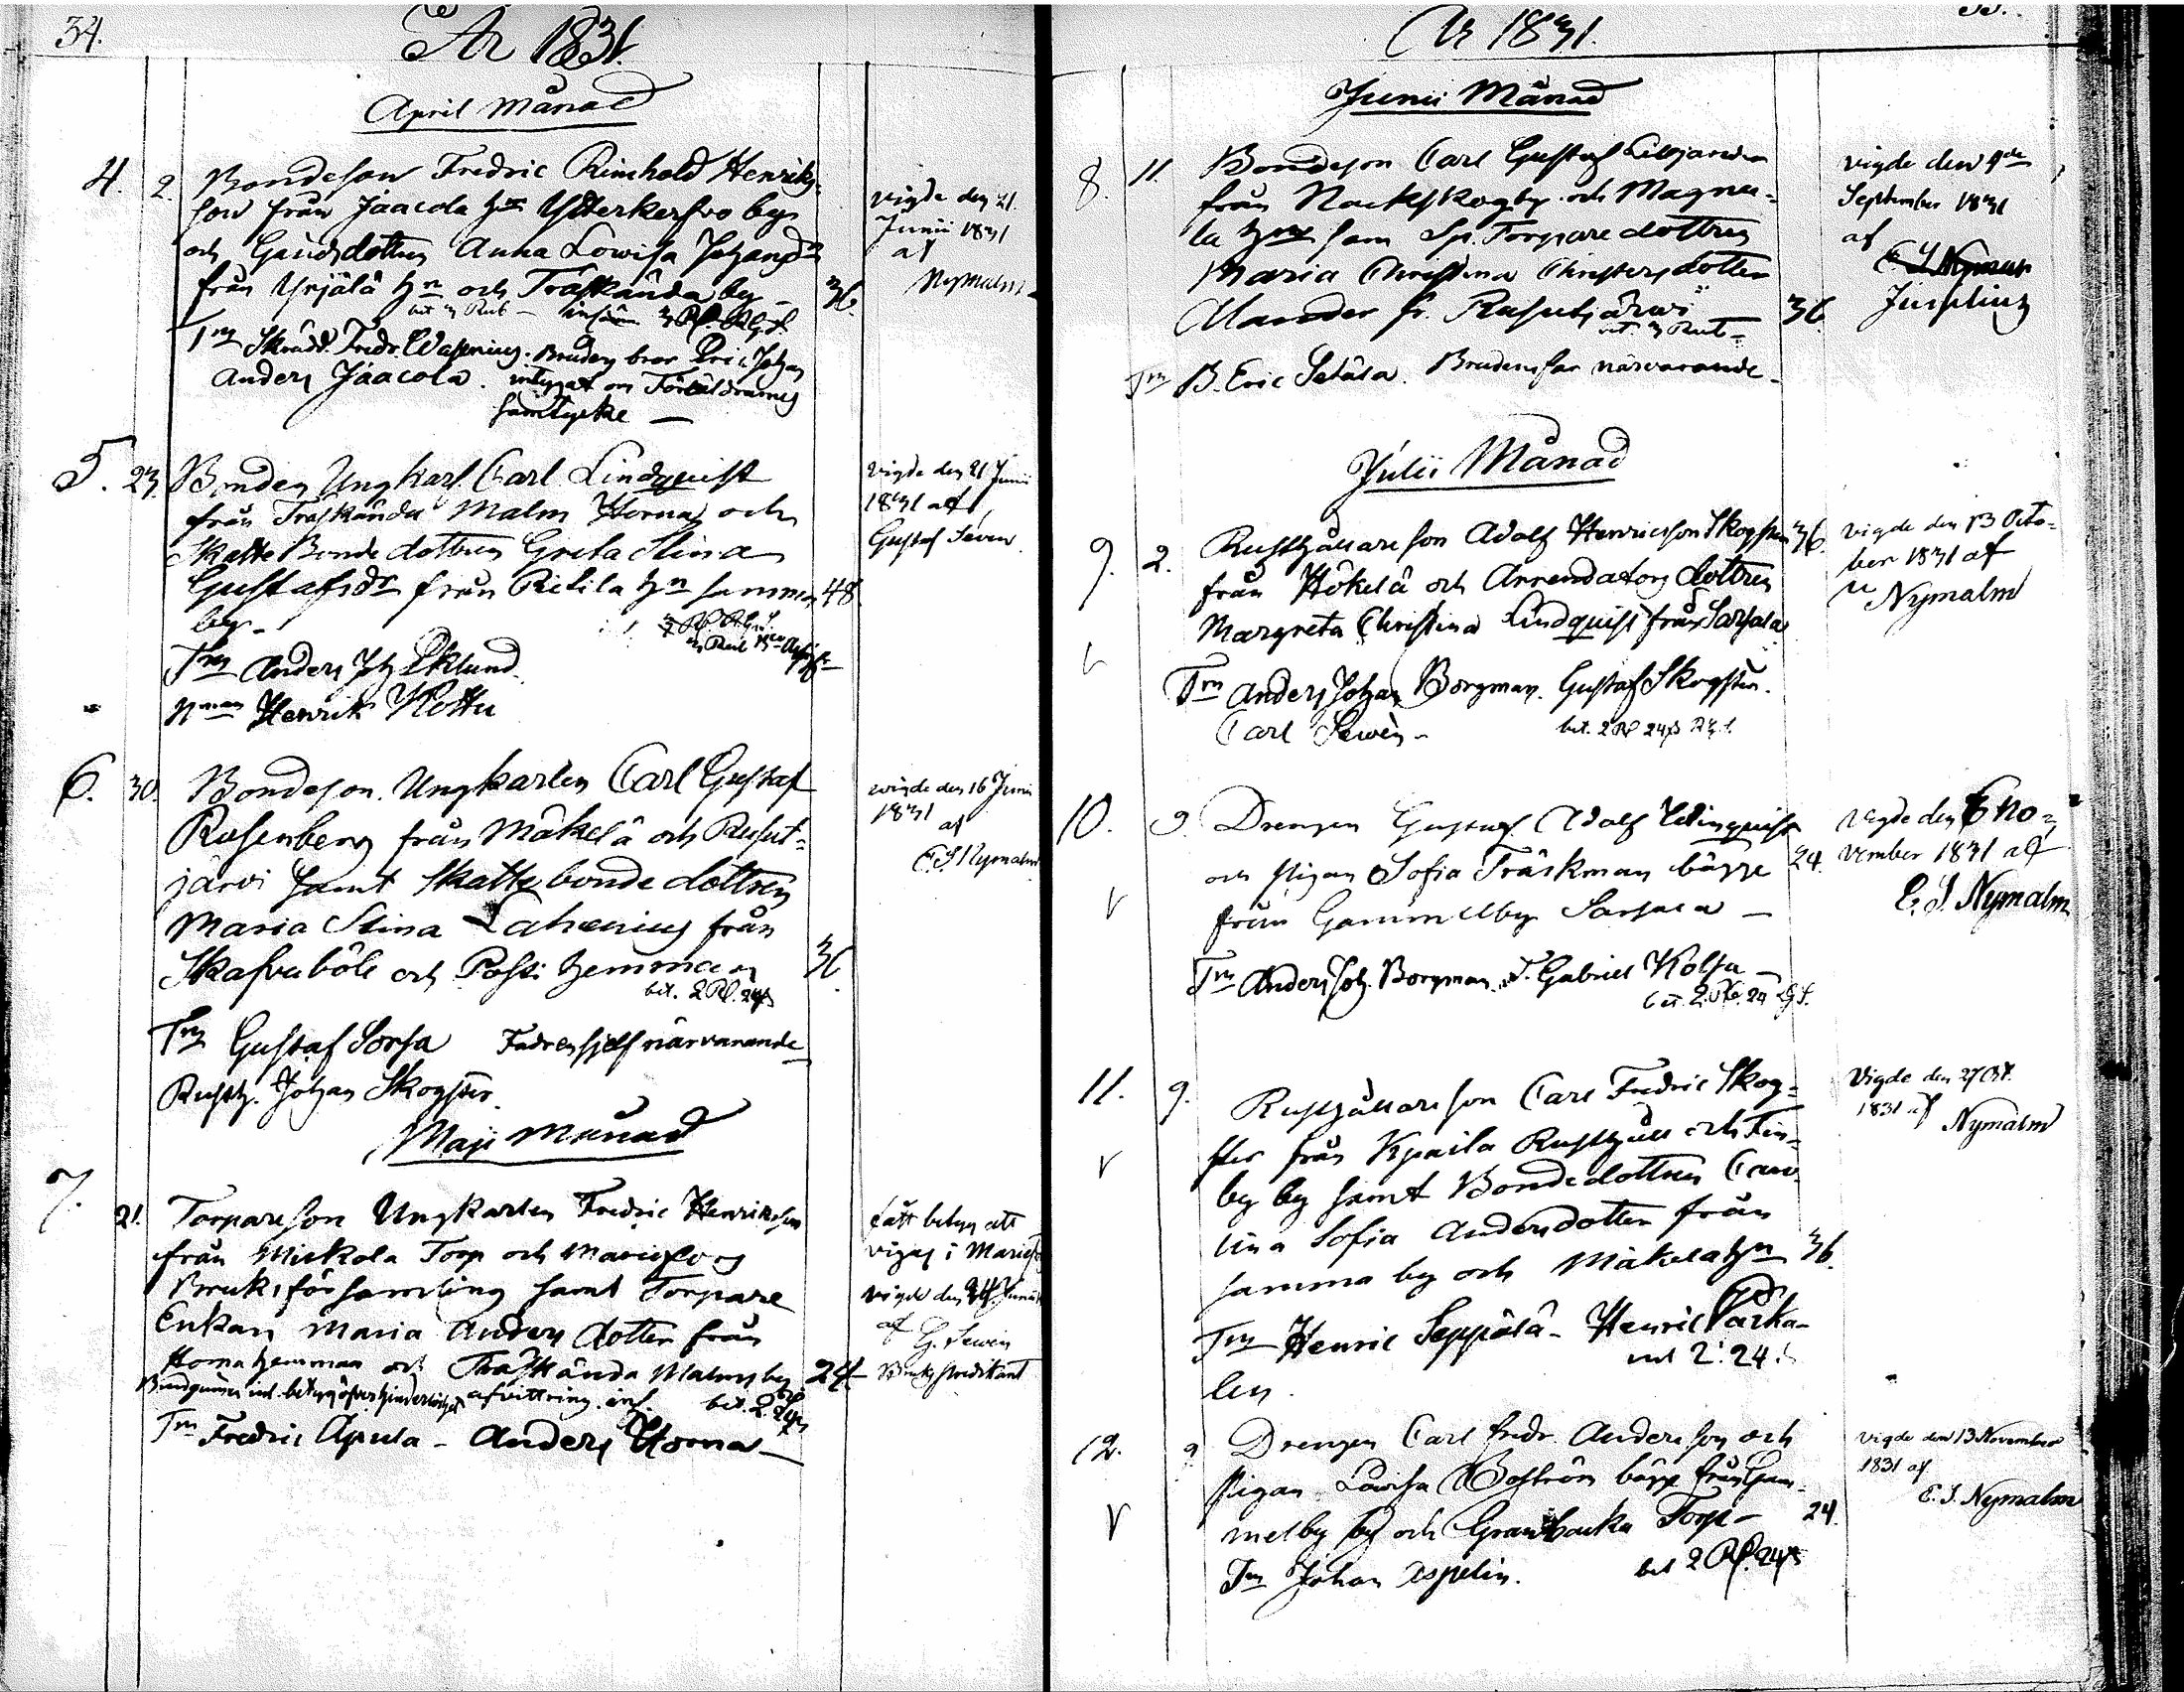 34.
År 1831.
April Månad
4. 2. Bondeson Fredric Reinhold Henriks-
son från Jaacola hn Ytterkersvo by
och Gårdsdottren Anna Lowisa Johansdr
från Yrjälä hn och Träskända by 36.
Tm Skrädd. Fredr. Wasenius. Brudens bror Eric Johan
Anders Jaacola. intygat om Föräldrarnes
samtycke
vigde den 21.
Junii 1831
af
Nymalm
5. 23. Bonden Ungkarl. Carl Lindquist
från Träskända Malm Horna och
Skatte Bonde dottren Greta Stina
Gustafsdr från Pietila hn samma 48.
by.
Tm Anders Joh Eklund
Nman Henrik Kottu
vigde den 21 Junii
1831 af
Gustaf Seven
6. 30. Bondeson. Ungkarlen Carl Gustaf
Rosenberg från Mäkelä och Rusut-
järvi samt Skatte bonde dottren
Maria Stina Lahenius från
Skafvaböle och Possi hemman 36.
bet. 2 Rd. 24 s
Tm Gustaf Sorsa Fadren sjelf närvarande
Rusth. Johan Skogster.
vigde den 16 Junii
1831
af
E. J. Nymalm
Maji Månad
7. 21. Torpareson Ungkarlen Fredric Henrikson
från Mickola Torp och Mariefors
Bruks församling samt Torpare
Enkan Maria Anders dotter från
Horna hemman och Träskända Malms by 24
afvittring. inf. bet. 2 24 s
Tm Fredric Apula - Anders Horna
fått betyg att
vigas i Mariefs
vigde den 24 Junii
af G. Sewen
Bruks Predikant
År 1831.
Junii Månad
8. 11. Bondeson Carl Gustaf
från Nackskogby och Magnu-
la hn sam Sp. Torpare dottren
Maria Christina Christersdotter
Mander fr. Rusutjärwi 36
Tm B. Eric Setälä. Brudens far närvarande
vigde den 4de
September 1831
af
E. J. Nymalm
Julii Månad
9. 2. Rusthållareson Adolf Henricsson Skogster 36.
från Hökelä och Arrendators dottren
Margreta Christina Lindquist från Sarsala
Tm Anders Johan Borgman. Gustaf Skogster.
Carl Sewèn
bet. 2 Rd 24 s
vigde den 13 Octo-
ber 1831 af
Nymalm
10. 9. Drengen Gustaf Adolf
och Pigan Sofia Träskman bägge 24.
från Gammelby Sarsala
Tm Anders Joh. Borgman. T. Gabriel Kolsa
vigde den 6 No-
vember 1831 af
E. J. Nymalm
11. 9. Rusthållareson Carl Fredric Skog-
ster från Kpaila Rusthåll och Fin-
by by samt Bondedottren Caro-
lina Sofia Andersdotter från
samma by och Mäkelä hn 36.
Tm Henric Seppälä - Henric Parka-
len.
Vigde den 27 Oct.
1831 af
Nymalm
12. 9. Drengen Carl fredr. Anderson och
Pigan Lowisa Boström bägge från Gam-
melby by och Granbacka Torp 24.
Tm Johan Aspelin. bet 2 Rd. 24 s
vigde den 13 November
1831 af
E. J. Nymalm